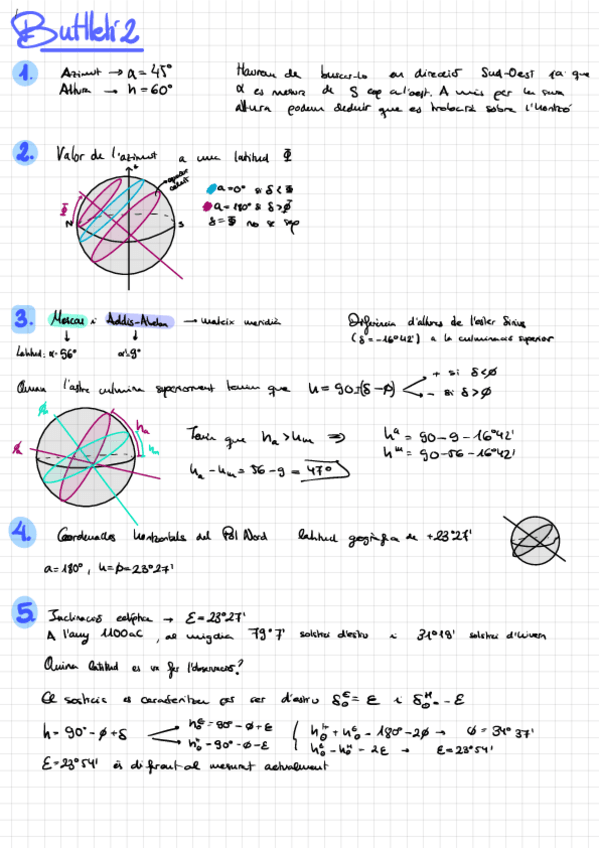 Butlletí 2
1. Azimut → a = 45° Hauríem de buscar-lo en direcció Sud-Oest ja que
Altura → h = 60° α es mesura de S cap a l'oest. A més per la seva
altura podem deduir que es trobarà sobre l'horitzó
2. Valor de l'azimut a una latitud Φ
equador celest
a=0° si δ < Φ
a=180° si δ > Φ
δ = Φ no se sap
N S
3. Moscou i Addis-Abeba → mateix meridià Diferència d'altures de l'estel Sirius
(δ = -16°42') a la culminació superior
Latitud: α = 56° α = 9°
Quan l'astre culmina superiorment tenim que h = 90 ± (δ - φ)
+ si δ < φ
- si δ > φ
ha
hm
Tenim que ha > hm ⇒
hᵃ = 90 - 9 - 16°42'
hᵐ = 90 - 56 - 16°42'
ha - hm = 56 - 9 = 47°
4. Coordenades horitzontals del Pol Nord latitud geogràfica de +23°27'
a = 180°, h = φ = 23°27'
5. Inclinació eclíptica → ε = 23°27'
A l'any 1100 aC, al migdia 79°7' solstici d'estiu i 31°19' solstici d'hivern
Quina latitud es va fer l'observació?
El solstici es caracteritza per ser d'estiu δ⊙ᴱ = ε i δ⊙ᴴ = -ε
h = 90° - φ + δ
h⊙ᴱ = 90° - φ + ε
h⊙ᴴ = 90° - φ - ε
h⊙ᴴ + h⊙ᴱ = 180 - 2φ → φ = 34°37'
h⊙ᴱ - h⊙ᴴ = 2ε → ε = 23°54'
ε = 23°54' és diferent al mesurat actualment